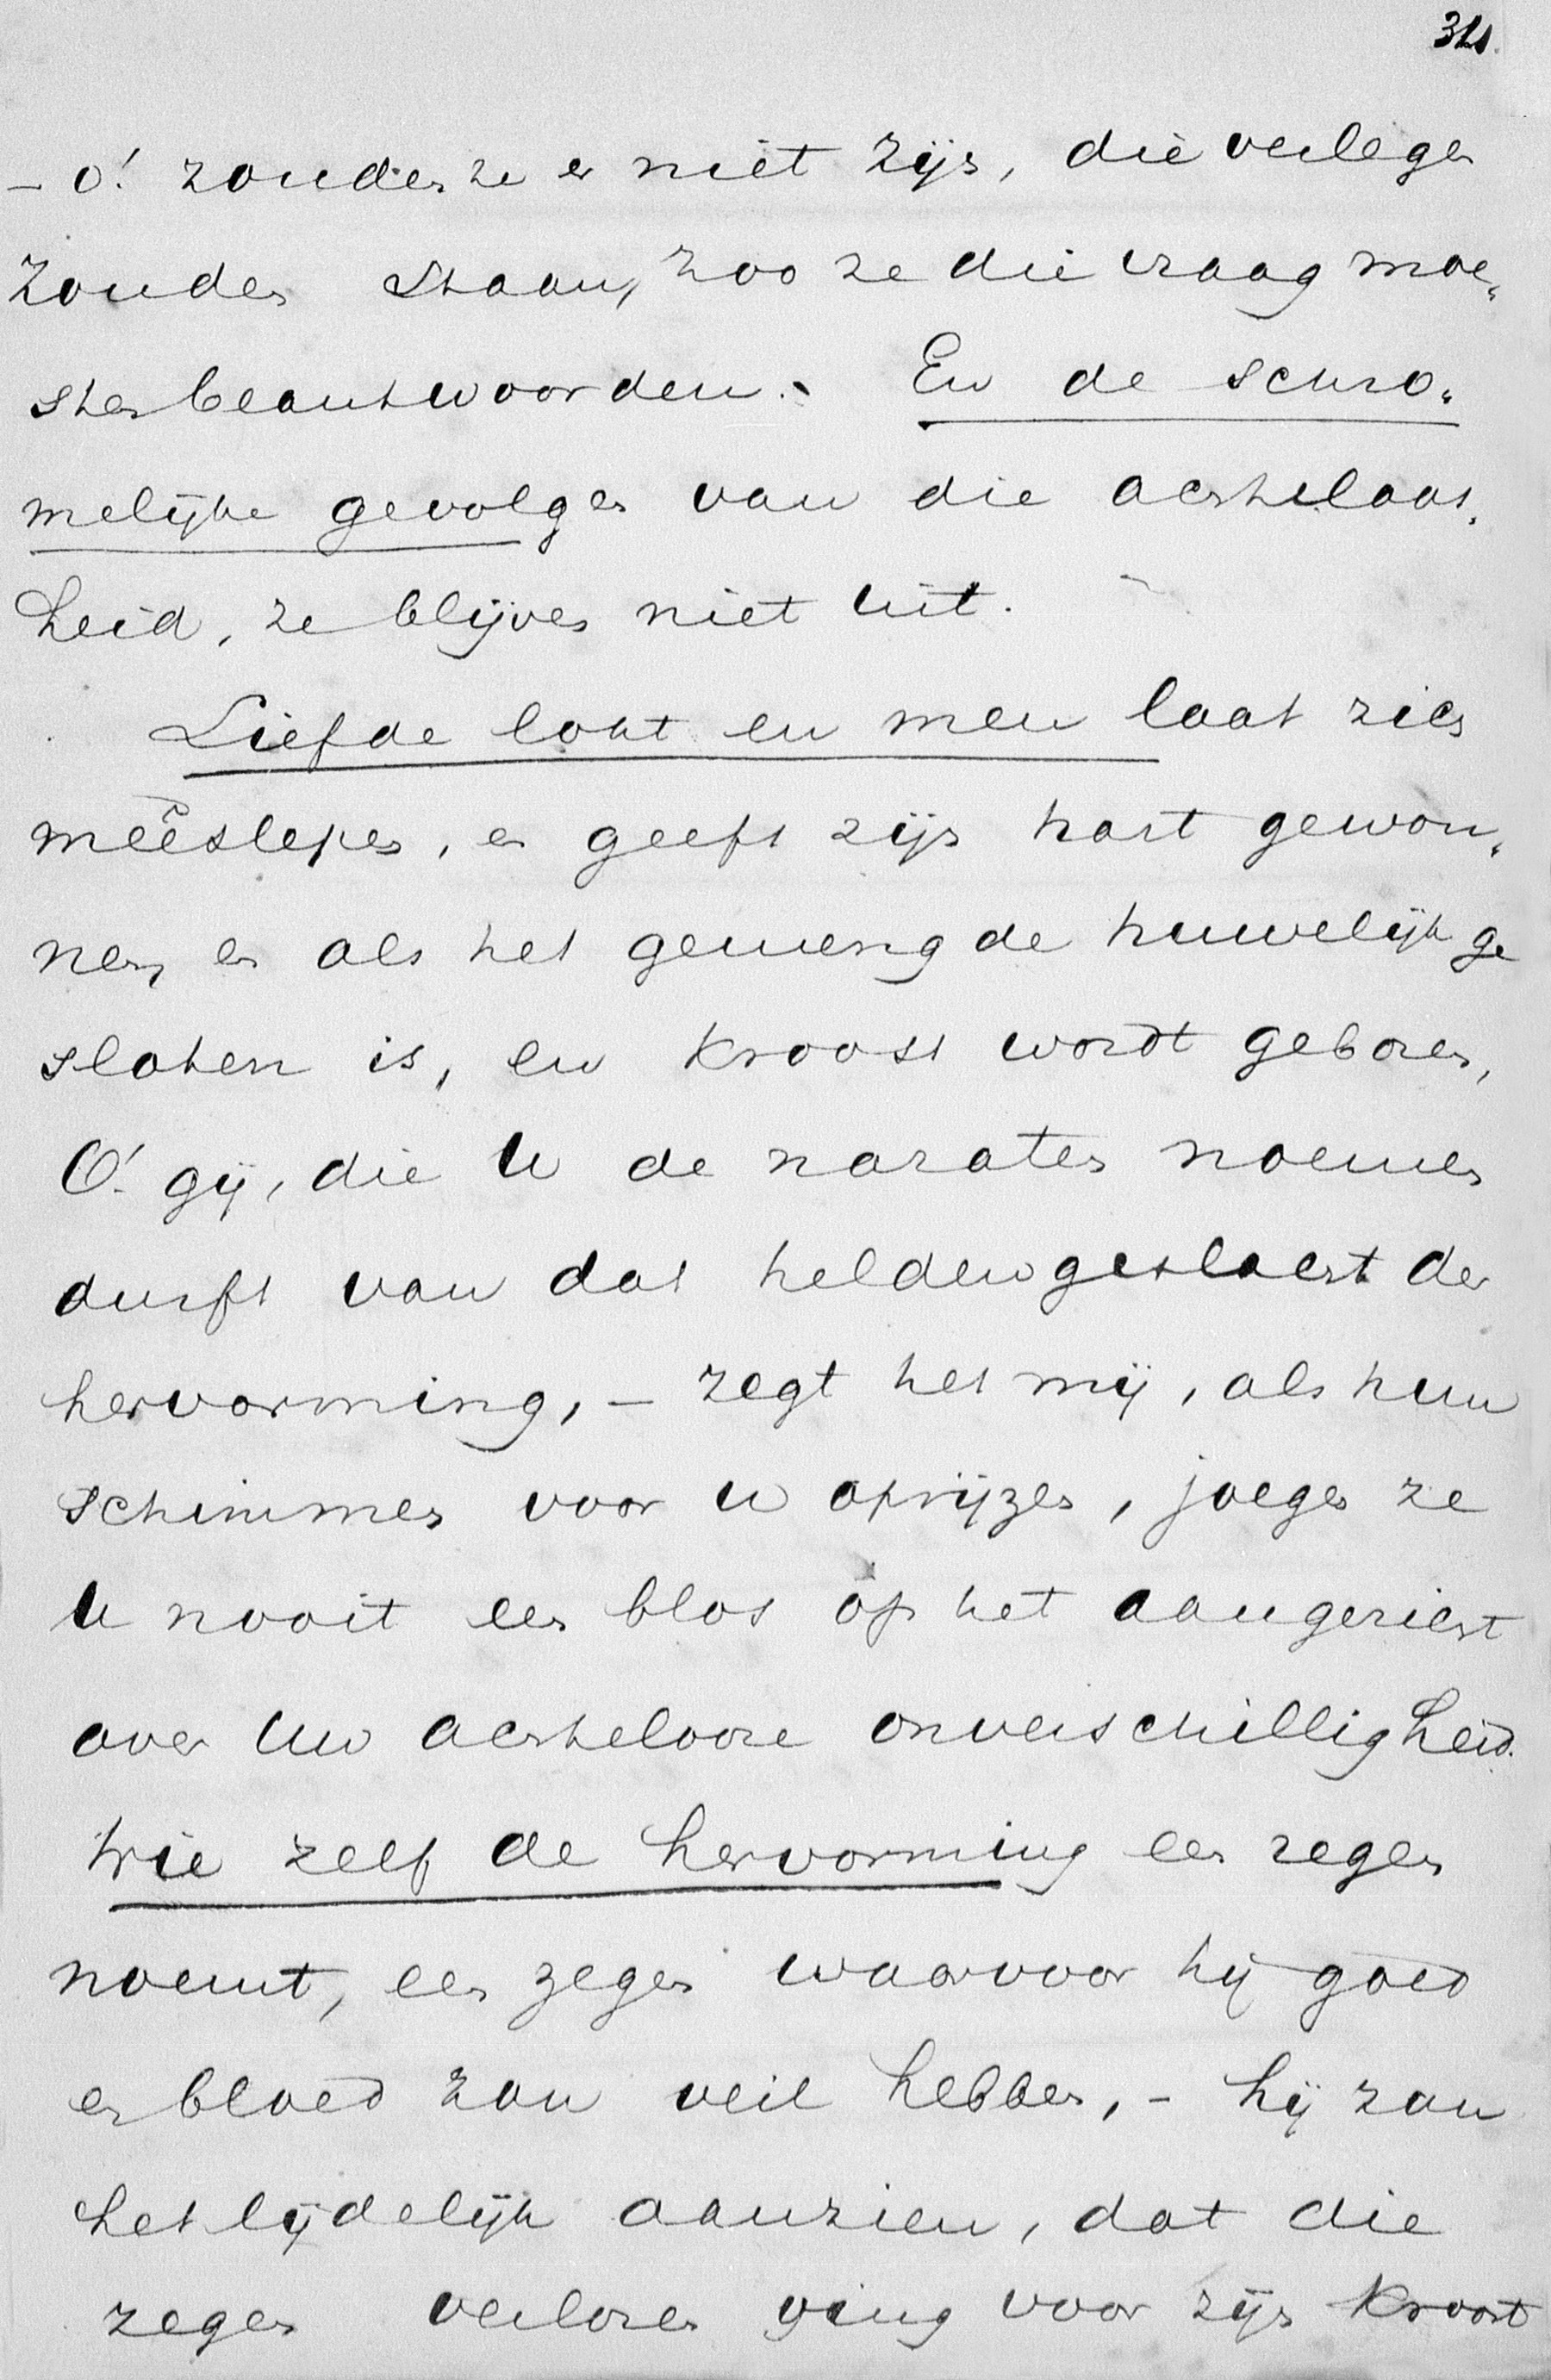 - o! zouden ze er niet zijn, die verlegen
zouden staan, zoo ze die vraag moe„
sten beantwoorden. En de schro„
melijke gevolgen van die achteloos„
heid, ze blijven niet uit.
Liefde lokt en men laat zich
meêslepen, en geeft zijn hart gewon„
nen, en als het gemengde huwelijk ge
sloten is, en kroost wordt geboren,
O! gij, die U de nazaten noemen
durft van dat heldengeslacht der
hervorming, - zegt het mij, als hun
schimmen voor u oprijzen, joegen ze
U nooit een blos op het aangezicht
over Uw achtelooze onverschilligheid.
Wie zelf de hervorming een zegen
noemt, een zegen waarvoor hij goed
en bloed zou veil hebben, - hij zou
het lijdelijk aanzien, dat die
zegen verloren ging voor zijn kroost